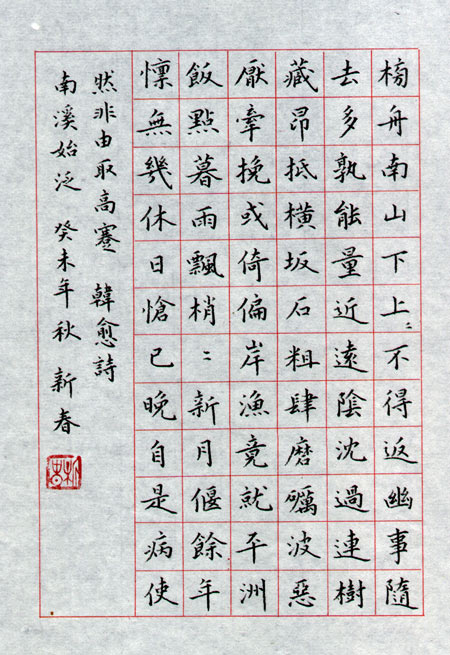 榜舟南山下上〻不得返幽事隨
去多孰能量近遠陰沈過連樹
藏昂抵橫坂石粗肆磨礪波惡
厭牽挽或倚偏岸漁竟就平洲
飯點暮雨飄梢〻新月偃餘年
懍無幾休日愴已晚自是病使
然非由取高蹇 韓愈詩
南溪始泛 癸未年秋 新春
新春